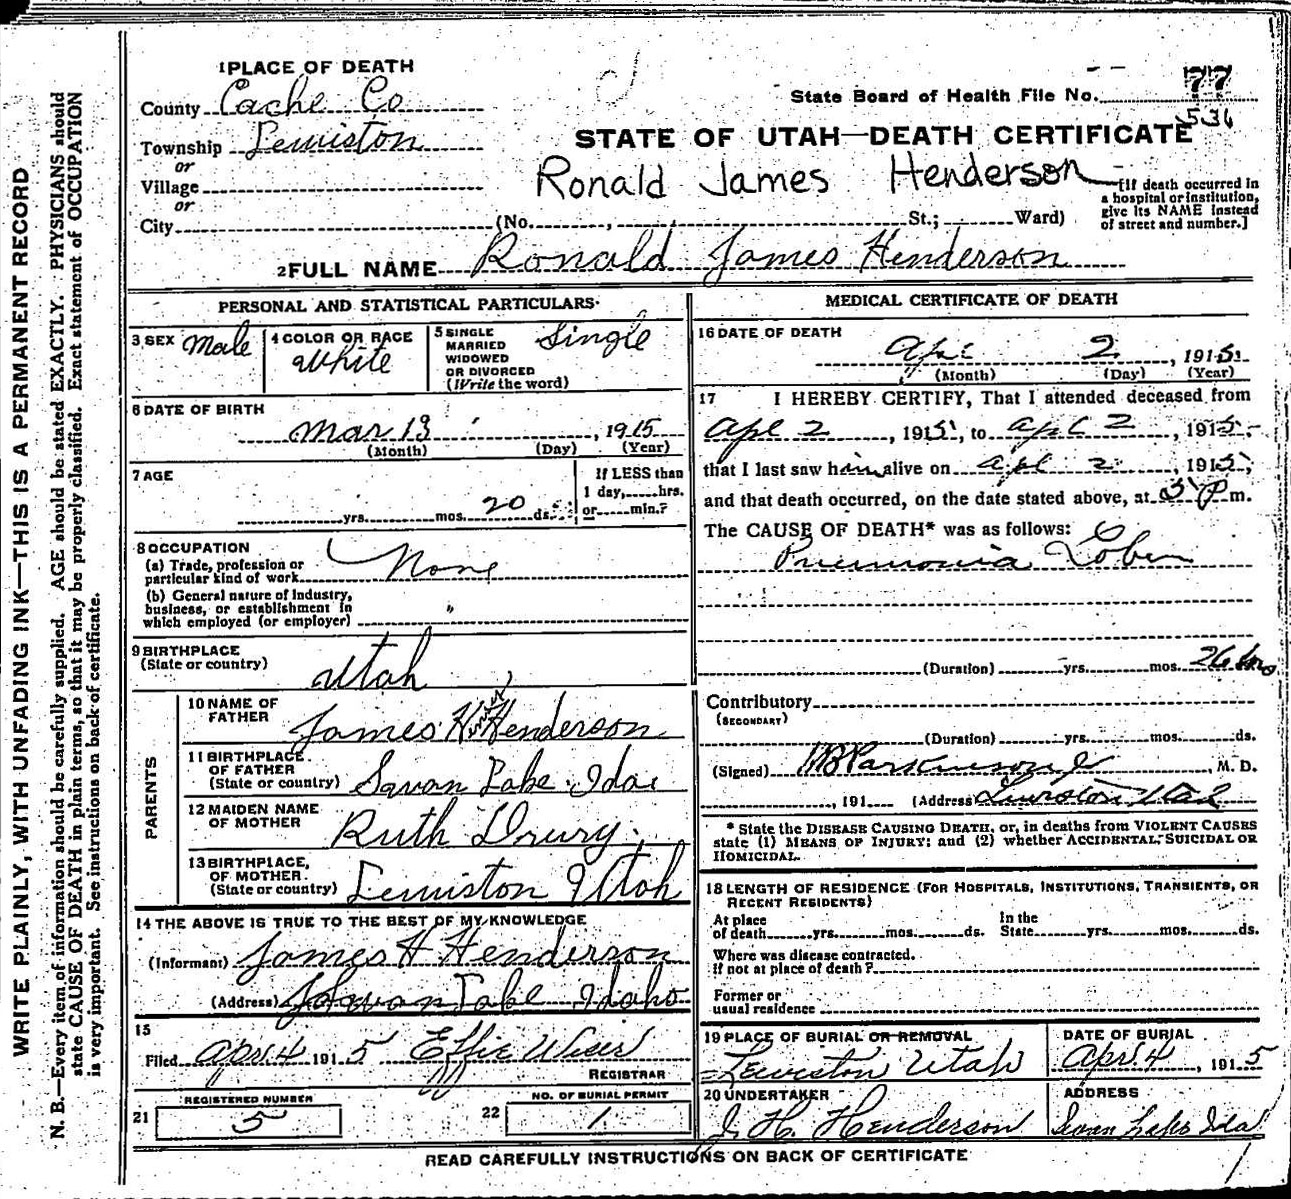 1 PLACE OF DEATH
County Cache Co
Township Lewiston
or
Village
or
City (No. , St.; Ward)
State Board of Health File No. 77
536
STATE OF UTAH—DEATH CERTIFICATE
Ronald James Henderson
[If death occurred in a hospital or institution, give its NAME instead of street and number.]
2 FULL NAME Ronald James Henderson
PERSONAL AND STATISTICAL PARTICULARS
3 SEX Male
4 COLOR OR RACE White
5 SINGLE MARRIED WIDOWED OR DIVORCED (Write the word) Single
6 DATE OF BIRTH
Mar 13, 1915
(Month) (Day) (Year)
7 AGE
yrs. mos. 20 ds.
If LESS than
1 day, hrs.
or min.?
8 OCCUPATION
(a) Trade, profession or
particular kind of work None
(b) General nature of industry,
business, or establishment in
which employed (or employer) "
9 BIRTHPLACE
(State or country) Utah
PARENTS
10 NAME OF
FATHER James H. Henderson
11 BIRTHPLACE
OF FATHER
(State or country) Swan Lake Ida
12 MAIDEN NAME
OF MOTHER Ruth Drury
13 BIRTHPLACE
OF MOTHER
(State or country) Lewiston Utah
14 THE ABOVE IS TRUE TO THE BEST OF MY KNOWLEDGE
(Informant) James H Henderson
(Address) Swan Lake Idaho
15
Filed Apr 4 1915 Effie Wiser
REGISTRAR
21 REGISTERED NUMBER
5
22 NO. OF BURIAL PERMIT
1
MEDICAL CERTIFICATE OF DEATH
16 DATE OF DEATH
Apr 2, 1915
(Month) (Day) (Year)
17 I HEREBY CERTIFY, That I attended deceased from
Apl 2, 1915, to Apl 2, 1915
that I last saw him alive on Apl 2, 1915,
and that death occurred, on the date stated above, at 5 P m.
The CAUSE OF DEATH* was as follows:
Pneumonia Lober
(Duration) yrs. mos. 26 hrs
Contributory
(SECONDARY)
(Duration) yrs. mos. ds.
(Signed) WB Parkinson Jr, M. D.
, 191 (Address) Lewiston Utah
* State the DISEASE CAUSING DEATH, or, in deaths from VIOLENT CAUSES
state (1) MEANS OF INJURY; and (2) whether ACCIDENTAL, SUICIDAL OR
HOMICIDAL.
18 LENGTH OF RESIDENCE (FOR HOSPITALS, INSTITUTIONS, TRANSIENTS, OR
RECENT RESIDENTS)
At place In the
of death yrs. mos. ds. State yrs. mos. ds.
Where was disease contracted.
if not at place of death?
Former or
usual residence
19 PLACE OF BURIAL OR REMOVAL
Lewiston Utah
DATE OF BURIAL
Apr 4, 1915
20 UNDERTAKER
J. H. Henderson
ADDRESS
Swan Lake Ida
READ CAREFULLY INSTRUCTIONS ON BACK OF CERTIFICATE
WRITE PLAINLY, WITH UNFADING INK—THIS IS A PERMANENT RECORD
N. B.—Every item of information should be carefully supplied. AGE should be stated EXACTLY. PHYSICIANS should
state CAUSE OF DEATH in plain terms, so that it may be properly classified. Exact statement of OCCUPATION
is very important. See instructions on back of certificate.